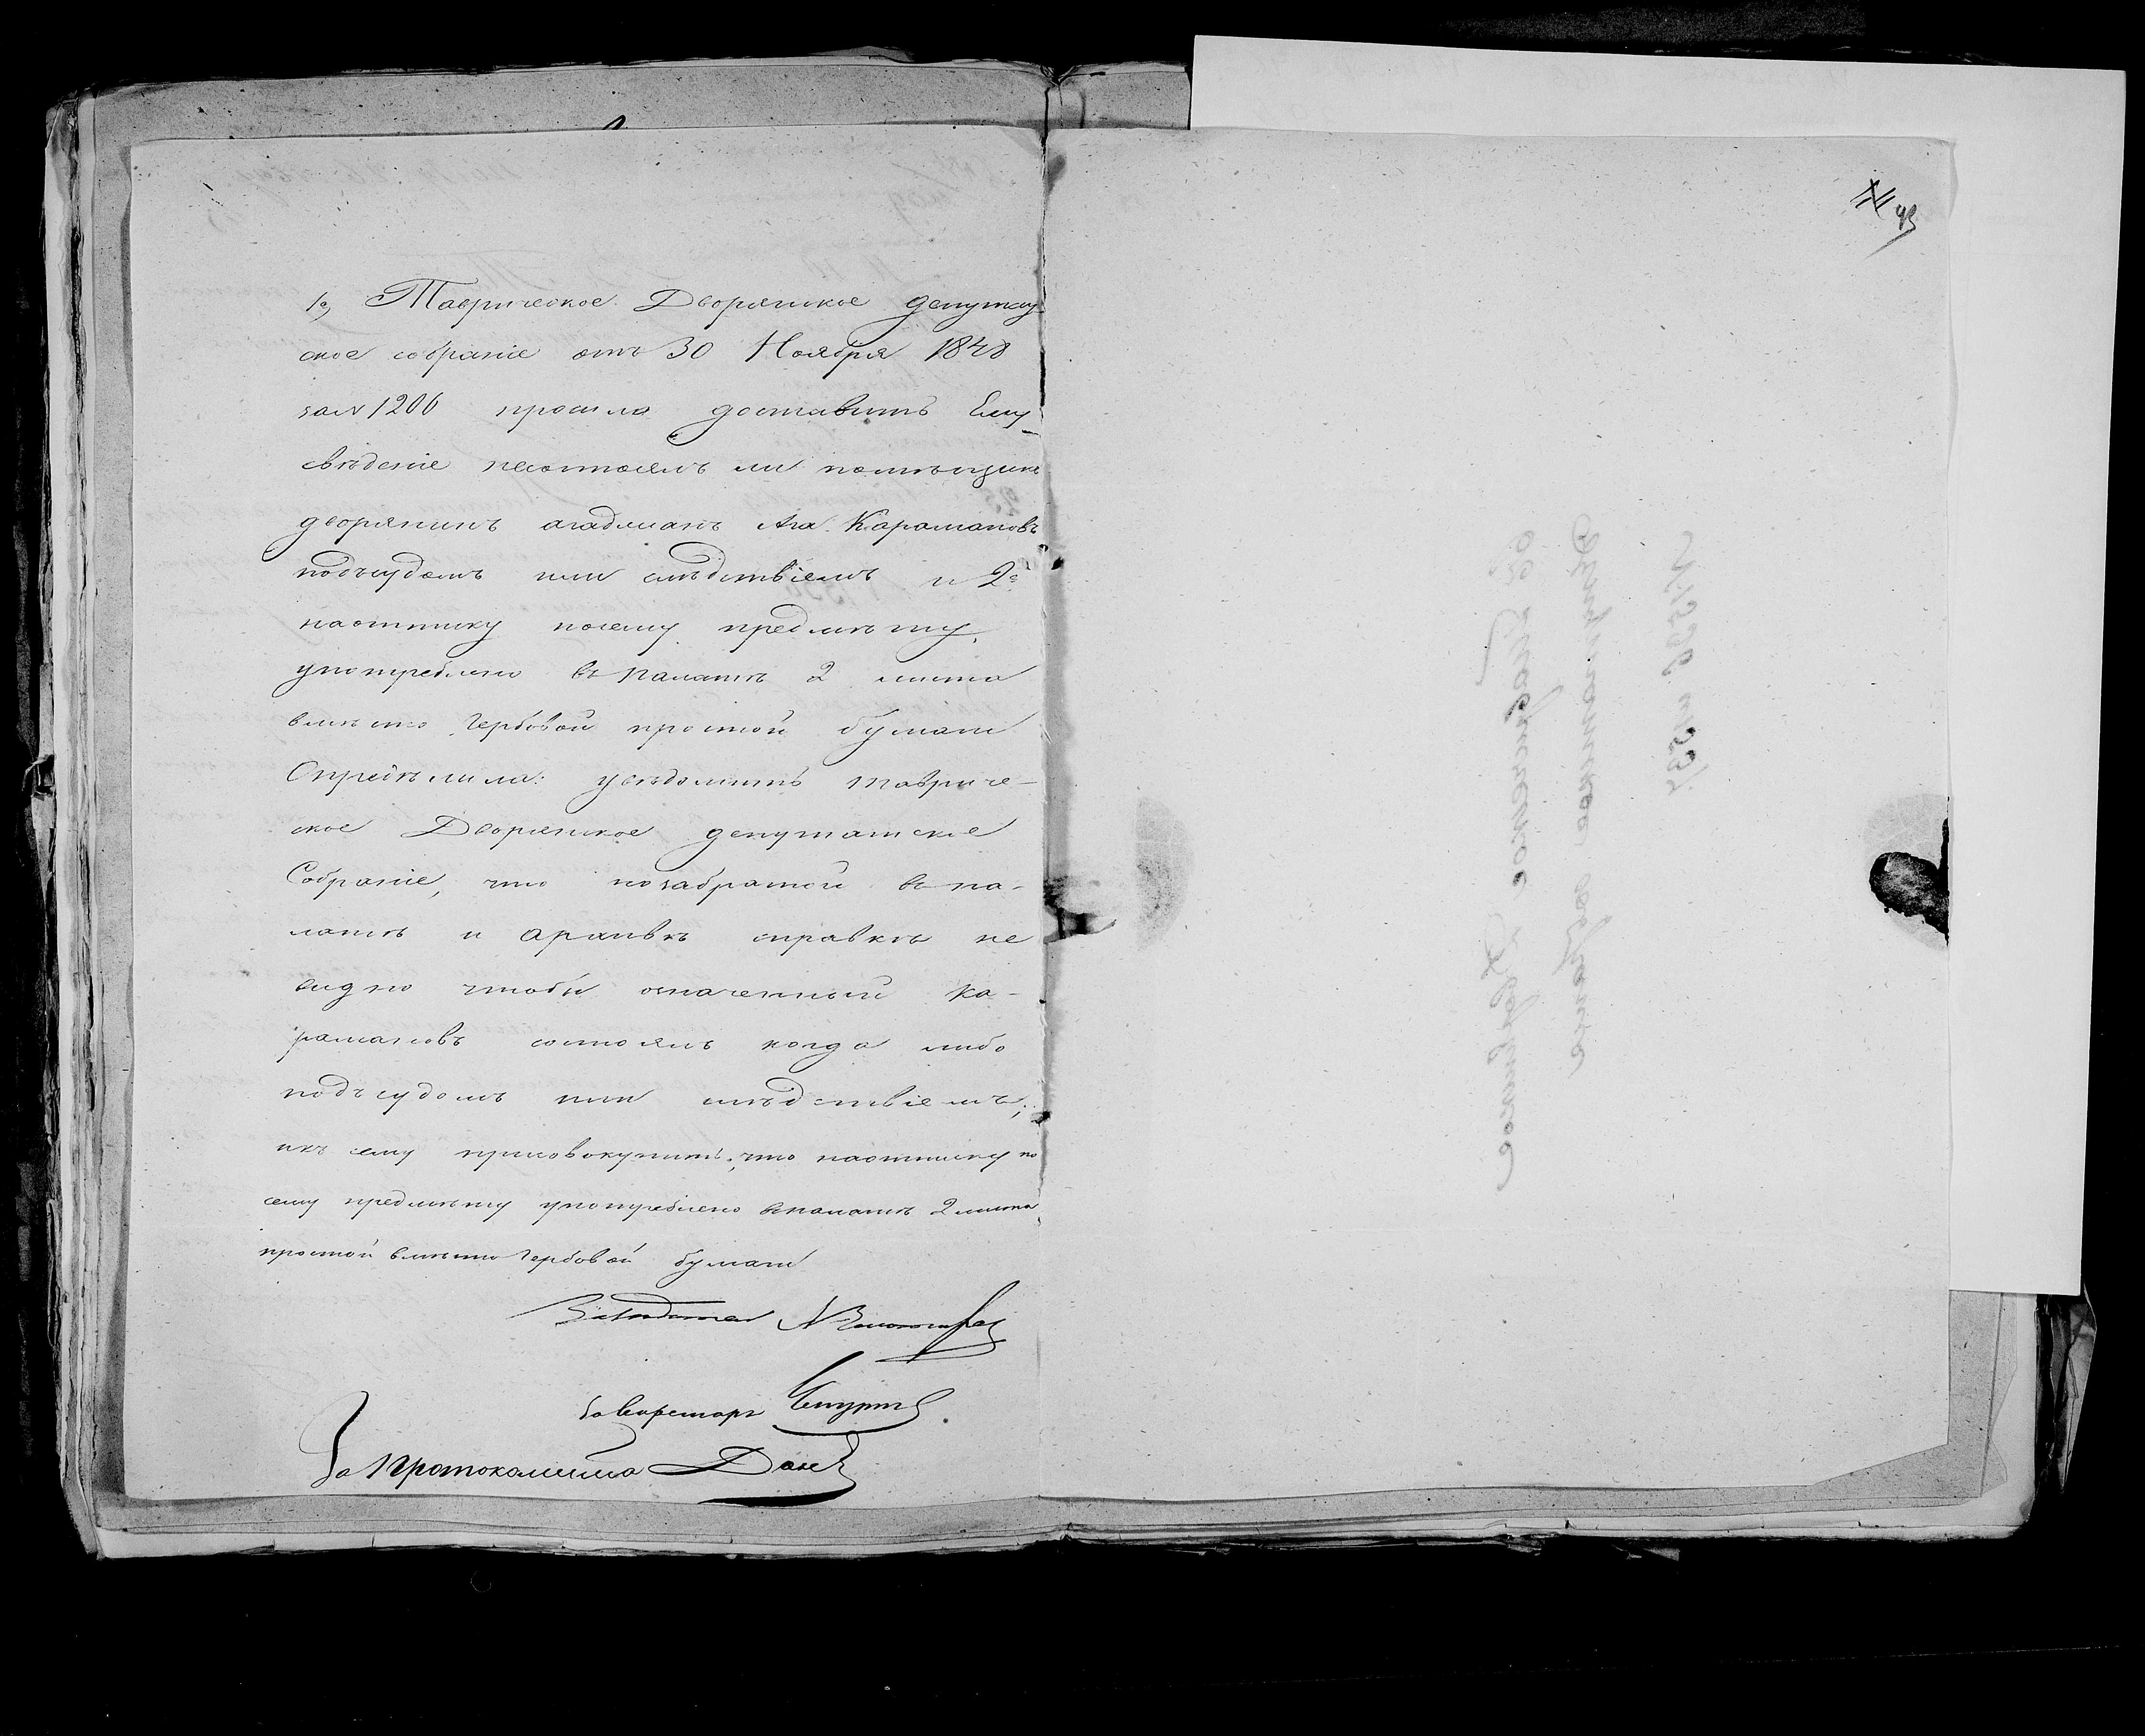 1е, Таврическое Дворянское депутат
ское собраніе отъ 30 Ноября 1848
за N 1206 просило доставить Ему
свѣденіе несостоялъ ли помѣщикъ
дворянинъ Ага Карамановъ
подъсудомъ или слѣдствіемъ и 2е
наотписку посему предмѣту,
употреблено въ палатѣ 2 листа
вмѣсто Гербовой простой бумаги
Опредѣлила: увѣдомить тавриче-
ское Дворянское депутатское
Собраніе, что позабратой въ па-
латѣ и архивѣ справкѣ не
видно чтобы означенный Ка-
рамановъ состоялъ когда либо
подъ судомъ или слѣдствіемъ;
икъ сему присовокупить, что наотписку по
сему предмѣту употреблено въпалатѣ 2 листа
простой вмѣсто Гербовой бумаги
Засѣдатель
За Секретаря
За Протоколиста
93
Въ Таврическое Дворянское
Депутатское собраніе